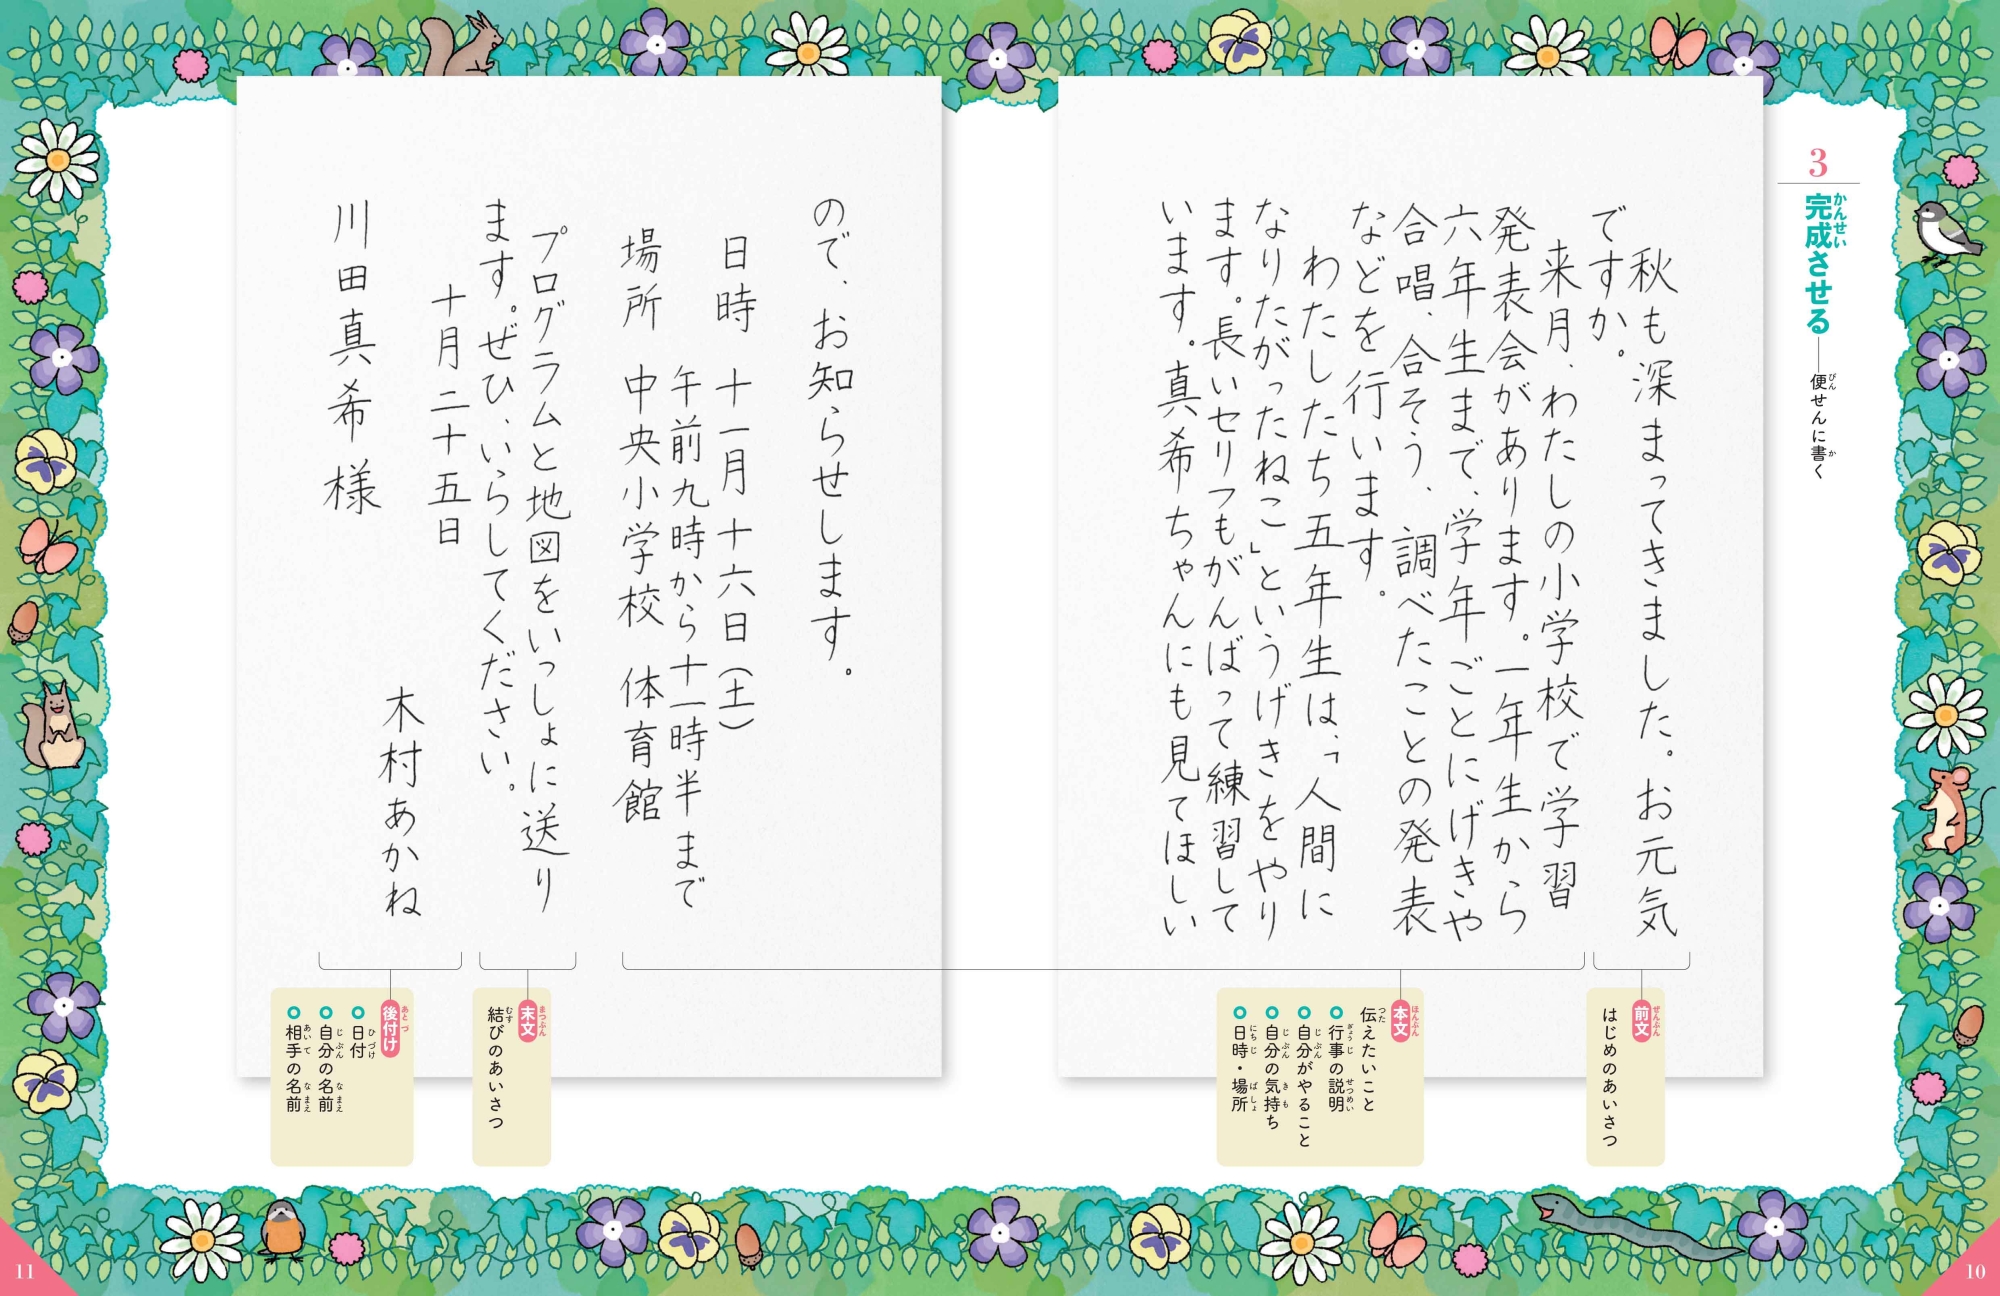 3
完成させる――便せんに書く
かんせい
びん
か
秋も深まってきました。お元気
ですか。
来月、わたしの小学校で学習
発表会があります。一年生から
六年生まで、学年ごとにげきや
合唱、合そう、調べたことの発表
などを行います。
わたしたち五年生は、「人間に
なりたがったねこ」というげきをやり
ます。長いセリフもがんばって練習して
います。真希ちゃんにも見てほしい
ので、お知らせします。
日時　十一月十六日（土）
午前九時から十一時半まで
場所　中央小学校　体育館
プログラムと地図をいっしょに送り
ます。ぜひ、いらしてください。
十月二十五日
木村あかね
川田真希様
前文
ぜんぶん
はじめのあいさつ
本文
ほんぶん
伝えたいこと
つた
行事の説明
ぎょうじ
せつめい
自分がやること
じぶん
自分の気持ち
じぶん
きも
日時・場所
にちじ
ばしょ
末文
まつぶん
結びのあいさつ
むす
後付け
あとづ
日付
ひづけ
自分の名前
じぶん
なまえ
相手の名前
あいて
なまえ
10
11